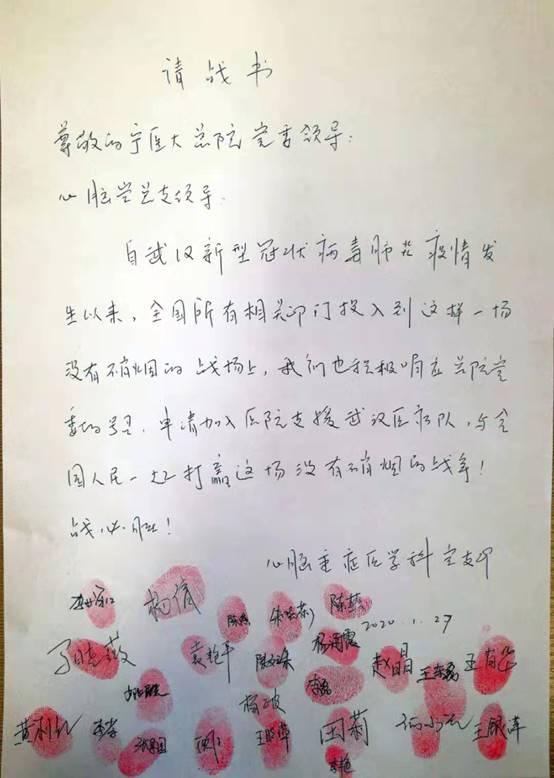 请战书
尊敬的宁医大总院党委领导:
心脑党总支领导:
自武汉新型冠状病毒肺炎疫情发
生以来,全国所有相关部门投入到这样一场
没有硝烟的战场上,我们也积极响应总院党
委的号召.申请加入医院支援武汉医疗队,与全
国人民一起打赢这场没有硝烟的战争!
战必胜!
心脑重症医学科党支部
杨倩
2020.1.27
丁晓薇 袁艳平 赵晶
杨波
李芳 田菊